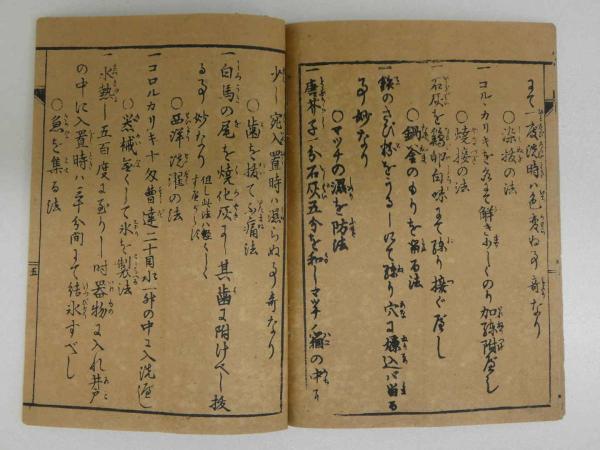 まて一度洗時ハ色変ぬる事奇なり
○染抜の法
一コルヽカリキを水まて解き少しのり加ゑ附屋し
○焼接の法
一石灰を鶏卵白味まて練り接ぐ屋し
○鍋釜のもりを留る法
一鉄のさび粉をうるしにて練り穴に込バ留る
事妙なり
○マッチの濕を防法
一唐芥子一分石灰五分を和しマッチノ箱の中に
少し宛入置時ハ濕らぬ事奇なり
○歯を接て不痛法
一白馬の尾を焼化灰にし其歯に附けべし抜
る事妙なり
○西洋洗濯の法
一コロルカリキ十匁曹達二十目水一升の中に入洗屋し
○器械無くして氷を製法
一水熱し五百度に至りし時器物に入れ井戸
の中に入置時ハ三十分間まて結氷すべし
○魚を集る法
五